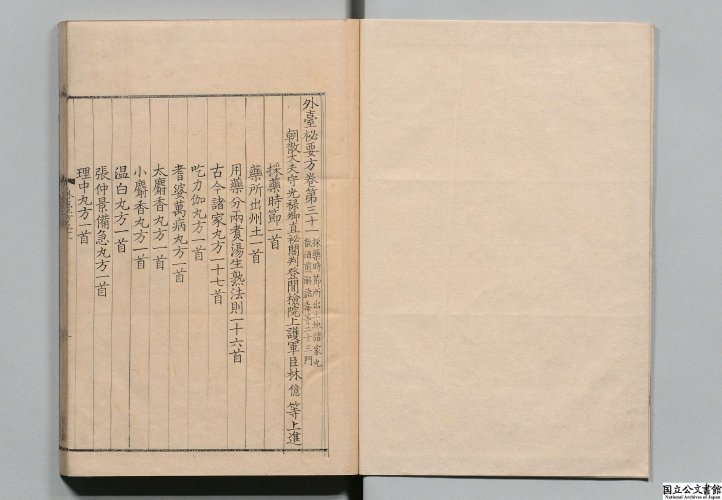 外臺祕要方卷第三十一 採藥時節所出土地諸家丸
散酒煎解諸毒等二十三門
朝散大夫守光祿卿直祕閣判登聞檢院上護軍臣林億等上進
採藥時節一首
藥所出州土一首
用藥分兩煑湯生熟法則一十六首
古今諸家丸方一十七首
吃力伽丸方一首
耆婆萬病丸方一首
太麝香丸方一首
小麝香丸方一首
温白丸方一首
張仲景備急丸方一首
理中丸方一首
国立公文書館
National Archives of Japan